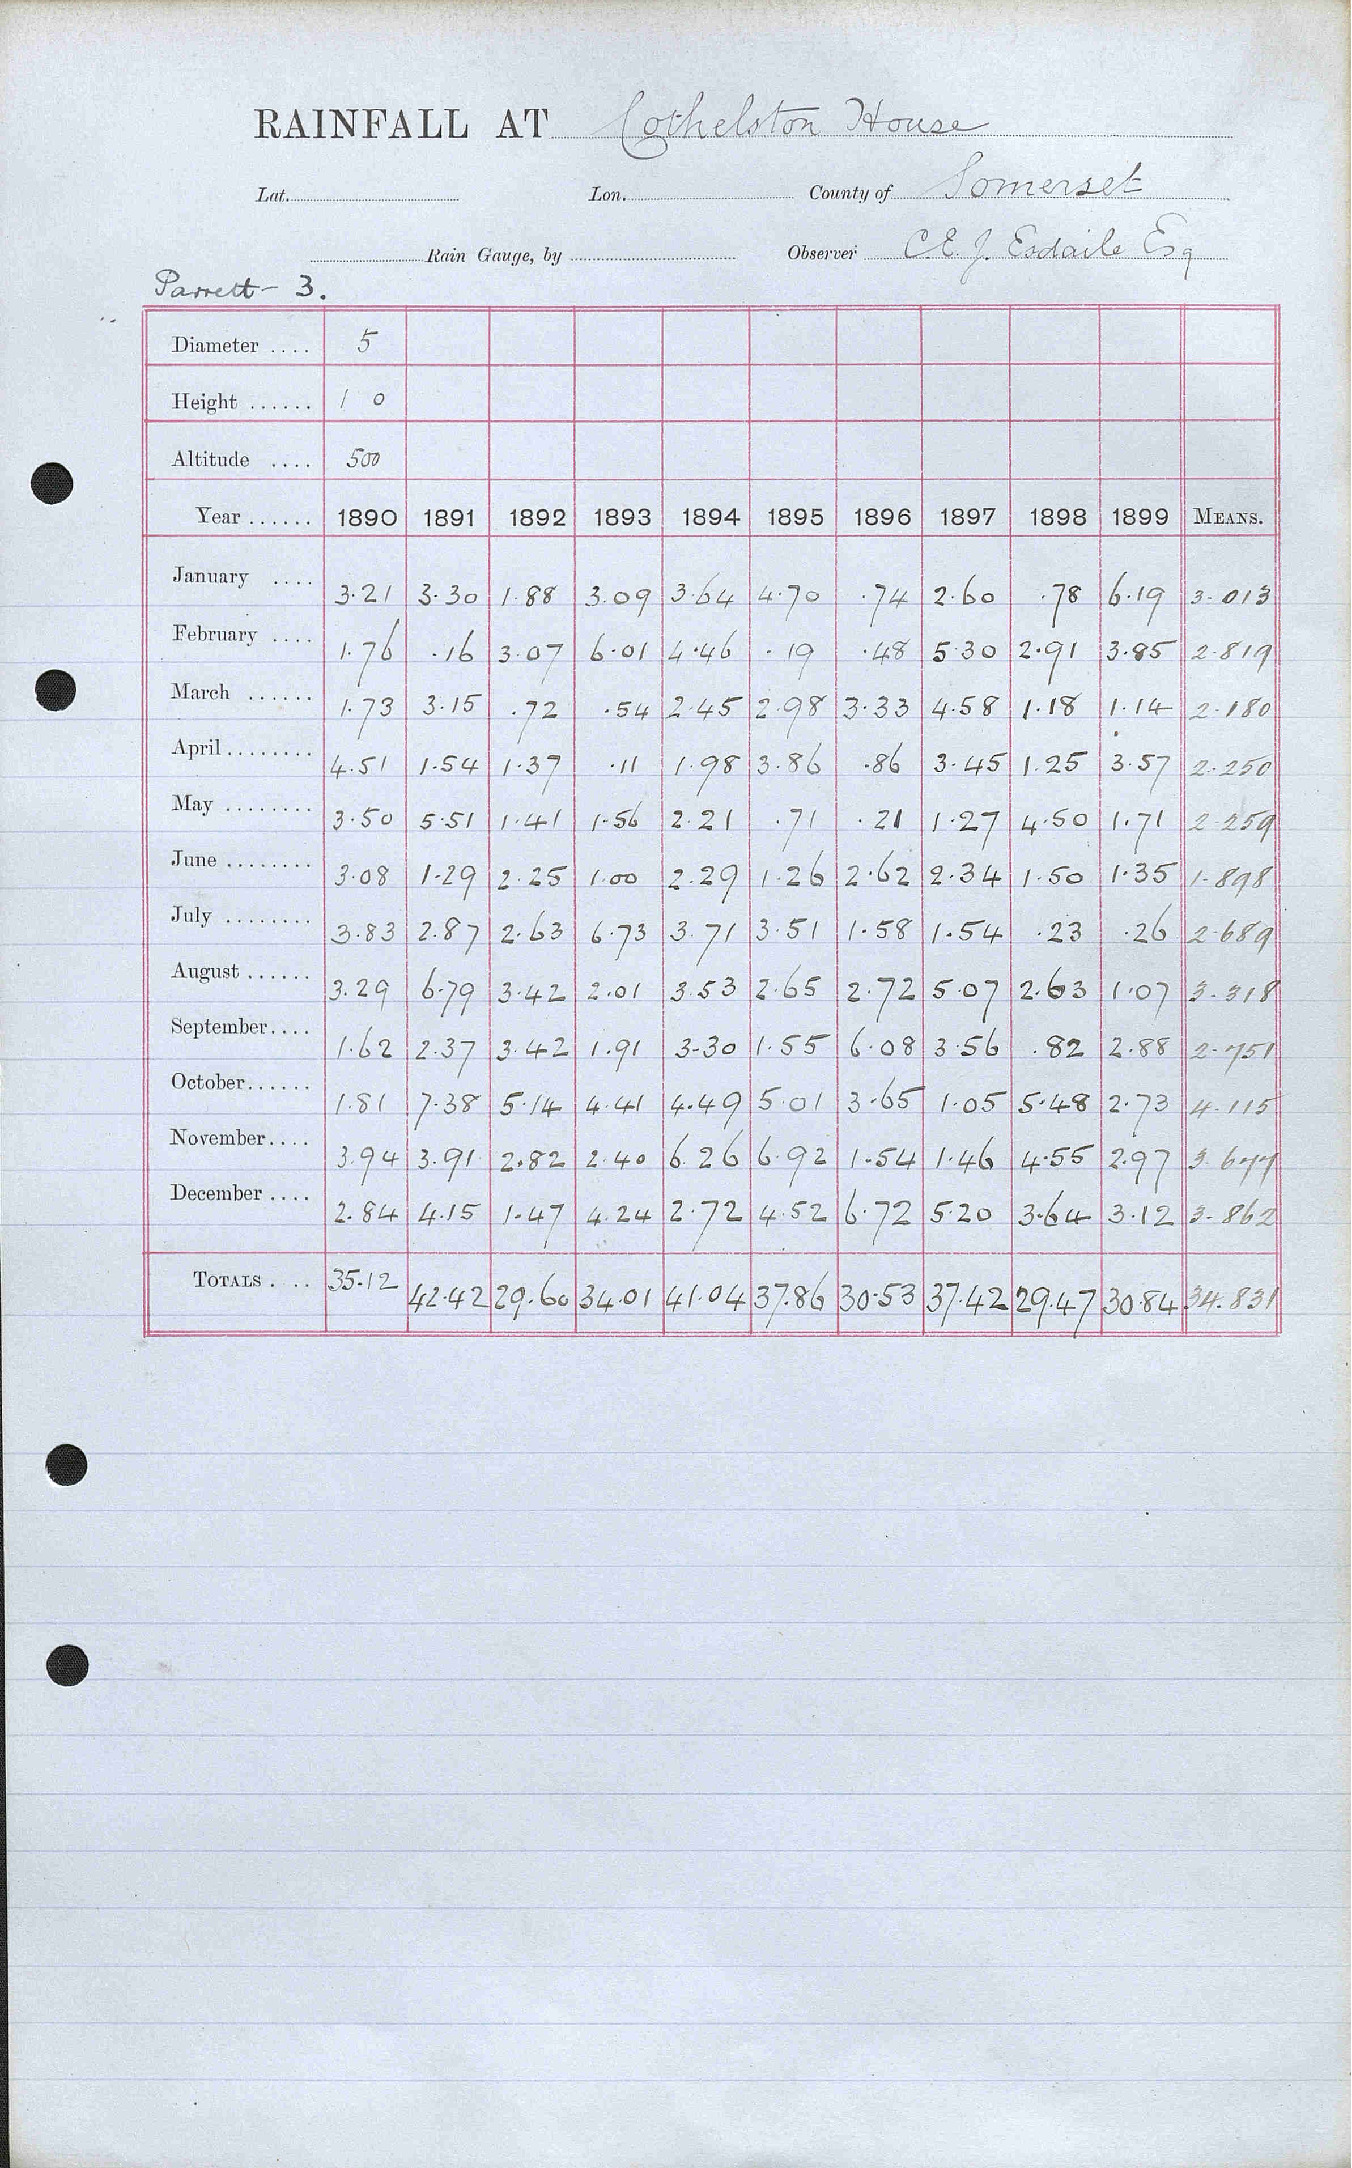 RAINFALL AT Cothelston House
Lat. Lon. County of Somerset
Rain Gauge, by Observer C E. J. Esdaile Esq
Parrett - 3.
Diameter .... 5
Height ...... 1 0
Altitude .... 500
Year ...... 1890 1891 1892 1893 1894 1895 1896 1897 1898 1899 MEANS.
January .... 3.21 3.30 1.88 3.09 3.64 4.70 .74 2.60 .78 6.19 3.013
February .... 1.76 .16 3.07 6.01 4.46 .19 .48 5.30 2.91 3.85 2.819
March ...... 1.73 3.15 .72 .54 2.45 2.98 3.33 4.58 1.18 1.14 2.180
April ........ 4.51 1.54 1.37 .11 1.98 3.86 .86 3.45 1.25 3.57 2.250
May ........ 3.50 5.51 1.41 1.56 2.21 .71 .21 1.27 4.50 1.71 2.259
June ........ 3.08 1.29 2.25 1.00 2.29 1.26 2.62 2.34 1.50 1.35 1.898
July ........ 3.83 2.87 2.63 6.73 3.71 3.51 1.58 1.54 .23 .26 2.689
August ...... 3.29 6.79 3.42 2.01 3.53 2.65 2.72 5.07 2.63 1.07 3.318
September .... 1.62 2.37 3.42 1.91 3.30 1.55 6.08 3.56 .82 2.88 2.751
October ...... 1.81 7.38 5.14 4.41 4.49 5.01 3.65 1.05 5.48 2.73 4.115
November .... 3.94 3.91 2.82 2.40 6.26 6.92 1.54 1.46 4.55 2.97 3.677
December .... 2.84 4.15 1.47 4.24 2.72 4.52 6.72 5.20 3.64 3.12 3.862
TOTALS .... 35.12 42.42 29.60 34.01 41.04 37.86 30.53 37.42 29.47 30.84 34.831